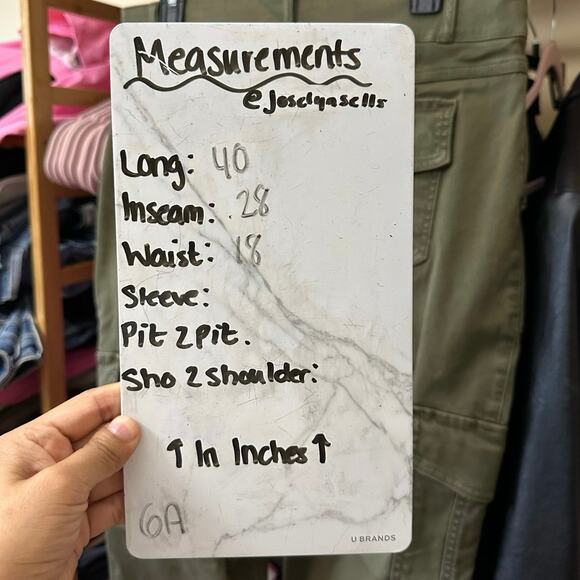 Measurements
@Joselynsells
Long: 40
Inseam: 28
Waist: 18
Sleeve:
Pit 2 Pit.
Sho 2 Shoulder:
↑ In Inches ↑
6A
U BRANDS